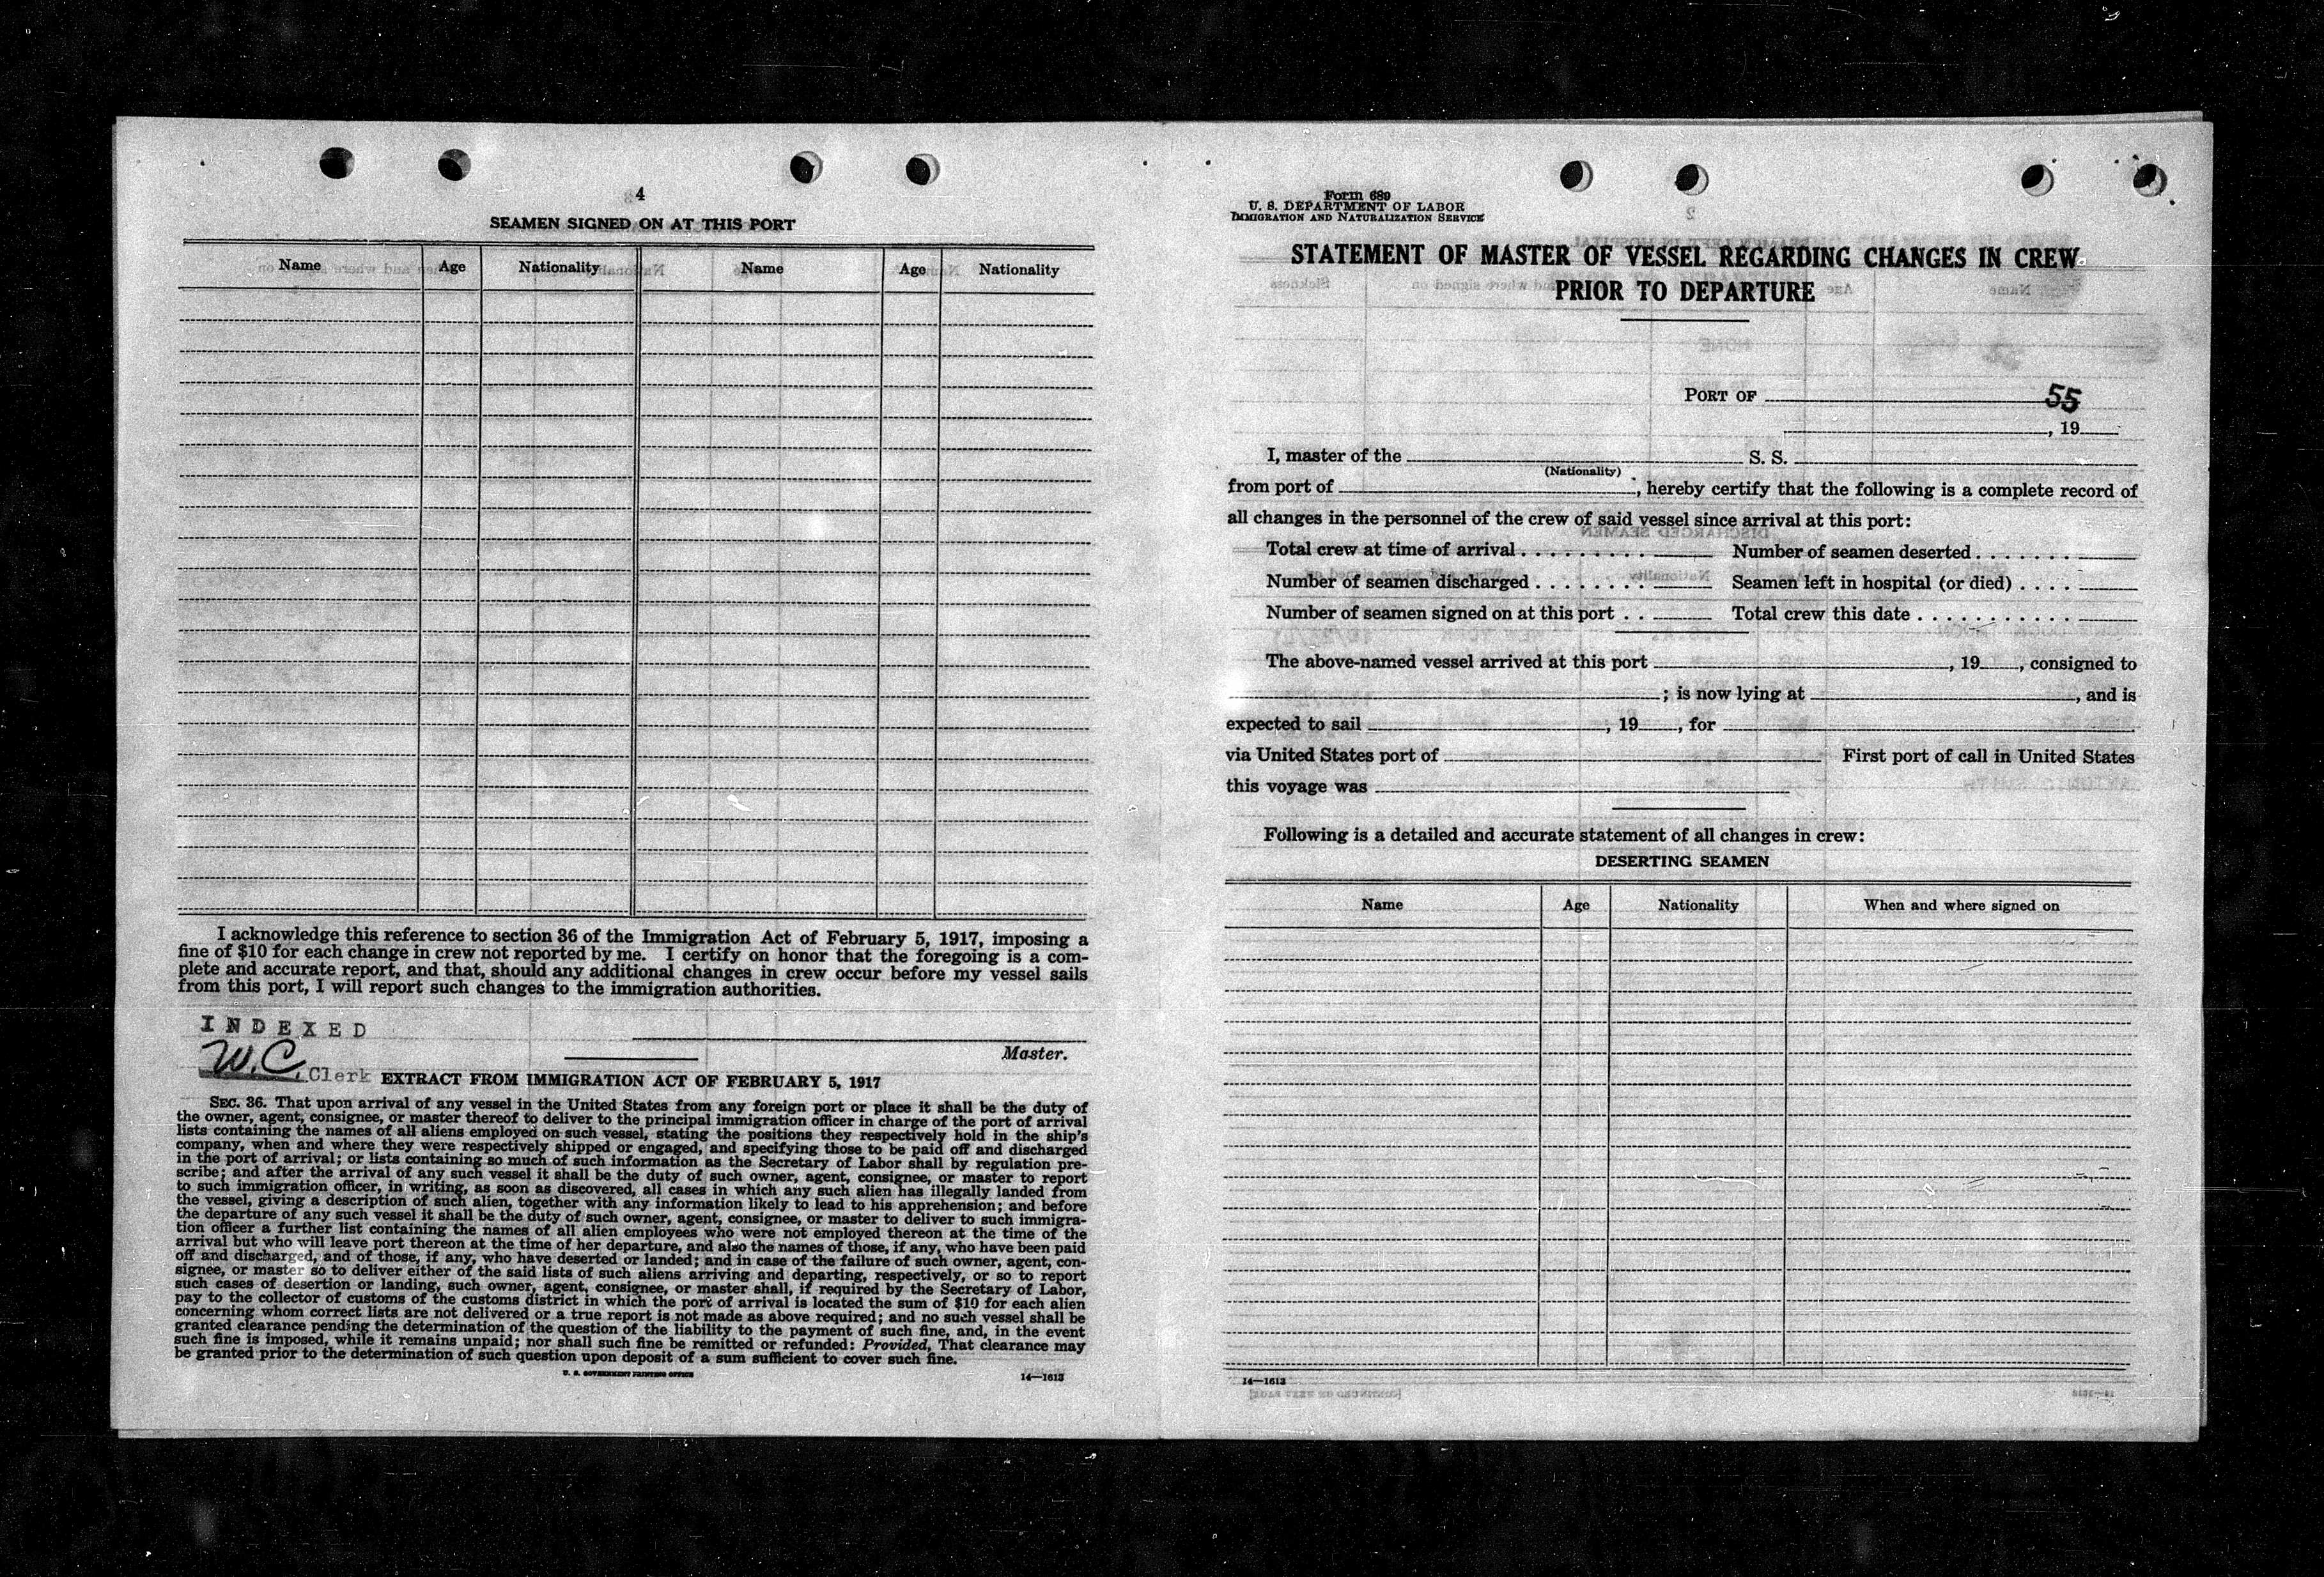 4
SEAMEN SIGNED ON AT THIS PORT
Name Age Nationality Name Age Nationality
I acknowledge this reference to section 36 of the Immigration Act of February 5, 1917, imposing a
fine of $10 for each change in crew not reported by me. I certify on honor that the foregoing is a com-
plete and accurate report, and that, should any additional changes in crew occur before my vessel sails
from this port, I will report such changes to the immigration authorities.
INDEXED
Master.
W.C. Clerk
EXTRACT FROM IMMIGRATION ACT OF FEBRUARY 5, 1917
SEC. 36. That upon arrival of any vessel in the United States from any foreign port or place it shall be the duty of
the owner, agent, consignee, or master thereof to deliver to the principal immigration officer in charge of the port of arrival
lists containing the names of all aliens employed on such vessel, stating the positions they respectively hold in the ship's
company, when and where they were respectively shipped or engaged, and specifying those to be paid off and discharged
in the port of arrival; or lists containing so much of such information as the Secretary of Labor shall by regulation pre-
scribe; and after the arrival of any such vessel it shall be the duty of such owner, agent, consignee, or master to report
to such immigration officer, in writing, as soon as discovered, all cases in which any such alien has illegally landed from
the vessel, giving a description of such alien, together with any information likely to lead to his apprehension; and before
the departure of any such vessel it shall be the duty of such owner, agent, consignee, or master to deliver to such immigra-
tion officer a further list containing the names of all alien employees who were not employed thereon at the time of the
arrival but who will leave port thereon at the time of her departure, and also the names of those, if any, who have been paid
off and discharged, and of those, if any, who have deserted or landed; and in case of the failure of such owner, agent, con-
signee, or master so to deliver either of the said lists of such aliens arriving and departing, respectively, or so to report
such cases of desertion or landing, such owner, agent, consignee, or master shall, if required by the Secretary of Labor,
pay to the collector of customs of the customs district in which the port of arrival is located the sum of $10 for each alien
concerning whom correct lists are not delivered or a true report is not made as above required; and no such vessel shall be
granted clearance pending the determination of the question of the liability to the payment of such fine, and, in the event
such fine is imposed, while it remains unpaid; nor shall such fine be remitted or refunded: Provided, That clearance may
be granted prior to the determination of such question upon deposit of a sum sufficient to cover such fine.
U. S. GOVERNMENT PRINTING OFFICE 14—1613
Form 689
U. S. DEPARTMENT OF LABOR
IMMIGRATION AND NATURALIZATION SERVICE
STATEMENT OF MASTER OF VESSEL REGARDING CHANGES IN CREW
PRIOR TO DEPARTURE
PORT OF 55
, 19
I, master of the S. S.
(Nationality)
from port of , hereby certify that the following is a complete record of
all changes in the personnel of the crew of said vessel since arrival at this port:
Total crew at time of arrival . . . . . . . . . Number of seamen deserted . . . . . . . .
Number of seamen discharged . . . . . . . . Seamen left in hospital (or died) . . . .
Number of seamen signed on at this port . . Total crew this date . . . . . . . . . . . .
The above-named vessel arrived at this port , 19 , consigned to
; is now lying at , and is
expected to sail , 19 , for
via United States port of First port of call in United States
this voyage was
Following is a detailed and accurate statement of all changes in crew:
DESERTING SEAMEN
Name Age Nationality When and where signed on
14—1613